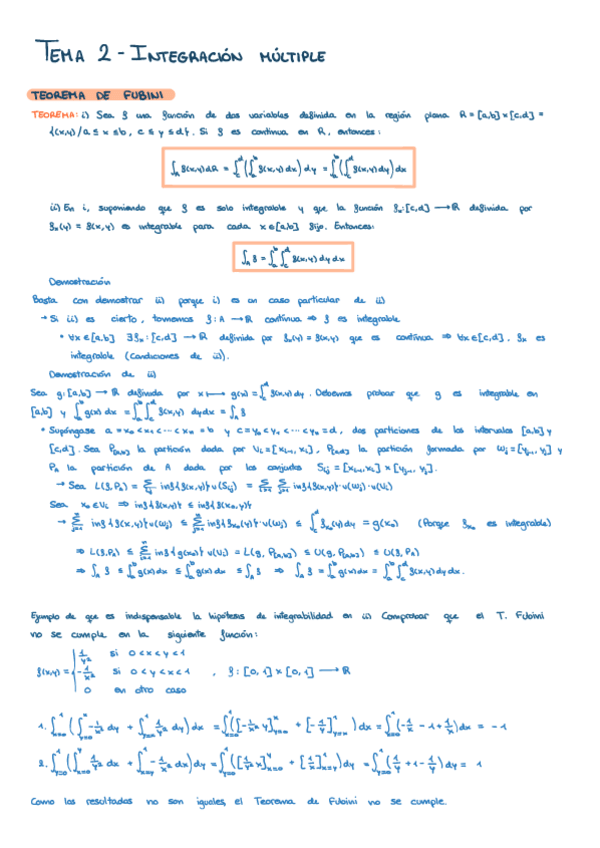 TEMA 2 - INTEGRACIÓN MÚLTIPLE
TEOREMA DE FUBINI
TEOREMA: i) Sea f una función de dos variables definida en la región plana R = [a,b]×[c,d] =
{(x,y) / a ≤ x ≤ b, c ≤ y ≤ d}. Si f es continua en R, entonces:
∫_A f(x,y)dR = ∫_c^d (∫_a^b f(x,y)dx) dy = ∫_a^b (∫_c^d f(x,y)dy) dx
ii) En i, suponiendo que f es solo integrable y que la función f_x: [c,d] → ℝ definida por
f_x(y) = f(x,y) es integrable para cada x ∈ [a,b] fijo. Entonces:
∫_A f = ∫_a^b ∫_c^d f(x,y) dy dx
Demostración
Basta con demostrar ii) porque i) es un caso particular de ii)
→ Si ii) es cierto, tomemos f: A → ℝ continua ⇒ f es integrable
• ∀x ∈ [a,b] ∃ f_x: [c,d] → ℝ definida por f_x(y) = f(x,y) que es continua ⇒ ∀x ∈ [c,d], f_x es
integrable (Condiciones de ii)).
Demostración de ii)
Sea g: [a,b] → ℝ definida por x ↦ g(x) = ∫_c^d f(x,y) dy. Debemos probar que g es integrable en
[a,b] y ∫_a^b g(x) dx = ∫_a^b ∫_c^d f(x,y) dy dx = ∫_A f
• Supóngase a = x₀ < x₁ < ... < x_n = b y c = y₀ < y₁ < ... < y_m = d, dos particiones de los intervalos [a,b] y
[c,d]. Sea P_[a,b] la partición dada por V_i = [x_{i-1}, x_i], P_[c,d] la partición formada por W_j = [y_{j-1}, y_j] y
P_A la partición de A dada por los conjuntos S_ij = [x_{i-1}, x_i] × [y_{j-1}, y_j].
→ Sea L(f, P_A) = Σ_{i,j} inf{f(x,y)}·v(S_ij) = Σ_{i=1}^n Σ_{j=1}^m inf{f(x,y)}·v(W_j)·v(V_i)
Sea x₀ ∈ V_i ⇒ inf{f(x,y)} ≤ inf{f(x₀,y)}
→ Σ_{j=1}^m inf{f(x,y)} v(W_j) ≤ Σ_{j=1}^m inf{f_{x₀}(y)}·v(W_j) ≤ ∫_c^d f_{x₀}(y) dy = g(x₀) (Porque f_{x₀} es integrable)
⇒ L(f, P_A) ≤ Σ_{i=1}^n inf{g(x₀)} v(V_i) = L(g, P_[a,b]) ≤ U(g, P_[a,b]) ≤ U(f, P_A)
⇒ ∫_A f ≤ ∫_a^b g(x) dx ≤ ∫_a^b g(x) dx ≤ ∫_A f ⇒ ∫_A f = ∫_a^b g(x) dx = ∫_a^b ∫_c^d f(x,y) dy dx.
Ejemplo de que es indispensable la hipótesis de integrabilidad en ii) Comprobar que el T. Fubini
no se cumple en la siguiente función:
1/y² si 0 < x < y < 1
f(x,y) = -1/x² si 0 < y < x < 1 , f: [0,1] × [0,1] → ℝ
0 en otro caso
1. ∫_{x=0}^1 (∫_{y=0}^x -1/x² dy + ∫_{y=x}^1 1/y² dy) dx = ∫_{x=0}^1 ([-1/x² y]_{y=0}^x + [-1/y]_{y=x}^1) dx = ∫_{x=0}^1 (-1/x - 1 + 1/x) dx = -1
2. ∫_{y=0}^1 (∫_{x=0}^y 1/y² dx + ∫_{x=y}^1 -1/x² dx) dy = ∫_{y=0}^1 ([1/y² x]_{x=0}^y + [1/x]_{x=y}^1) dy = ∫_{y=0}^1 (1/y + 1 - 1/y) dy = 1
Como los resultados no son iguales, el Teorema de Fubini no se cumple.